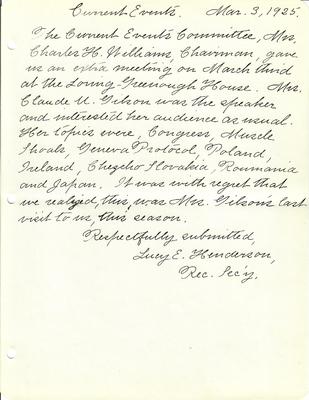 Current Events. Mar. 3, 1925.
The Current Events Committee, Mrs.
Charles H. Williams, Chairman, gave
us an extra meeting on March third
at the Loring-Greenough House. Mrs.
Claude U. Gilson was the speaker
and interested her audience as usual.
Her topics were, Congress, Muscle
Shoals, Geneva Protocol, Poland,
Ireland, Checho Slovakia, Roumania
and Japan. It was with regret that
we realized this, was Mrs. Gilson's last
visit to us, this season.
Respectfully submitted,
Lucy E. Henderson,
Rec. Sec'y.